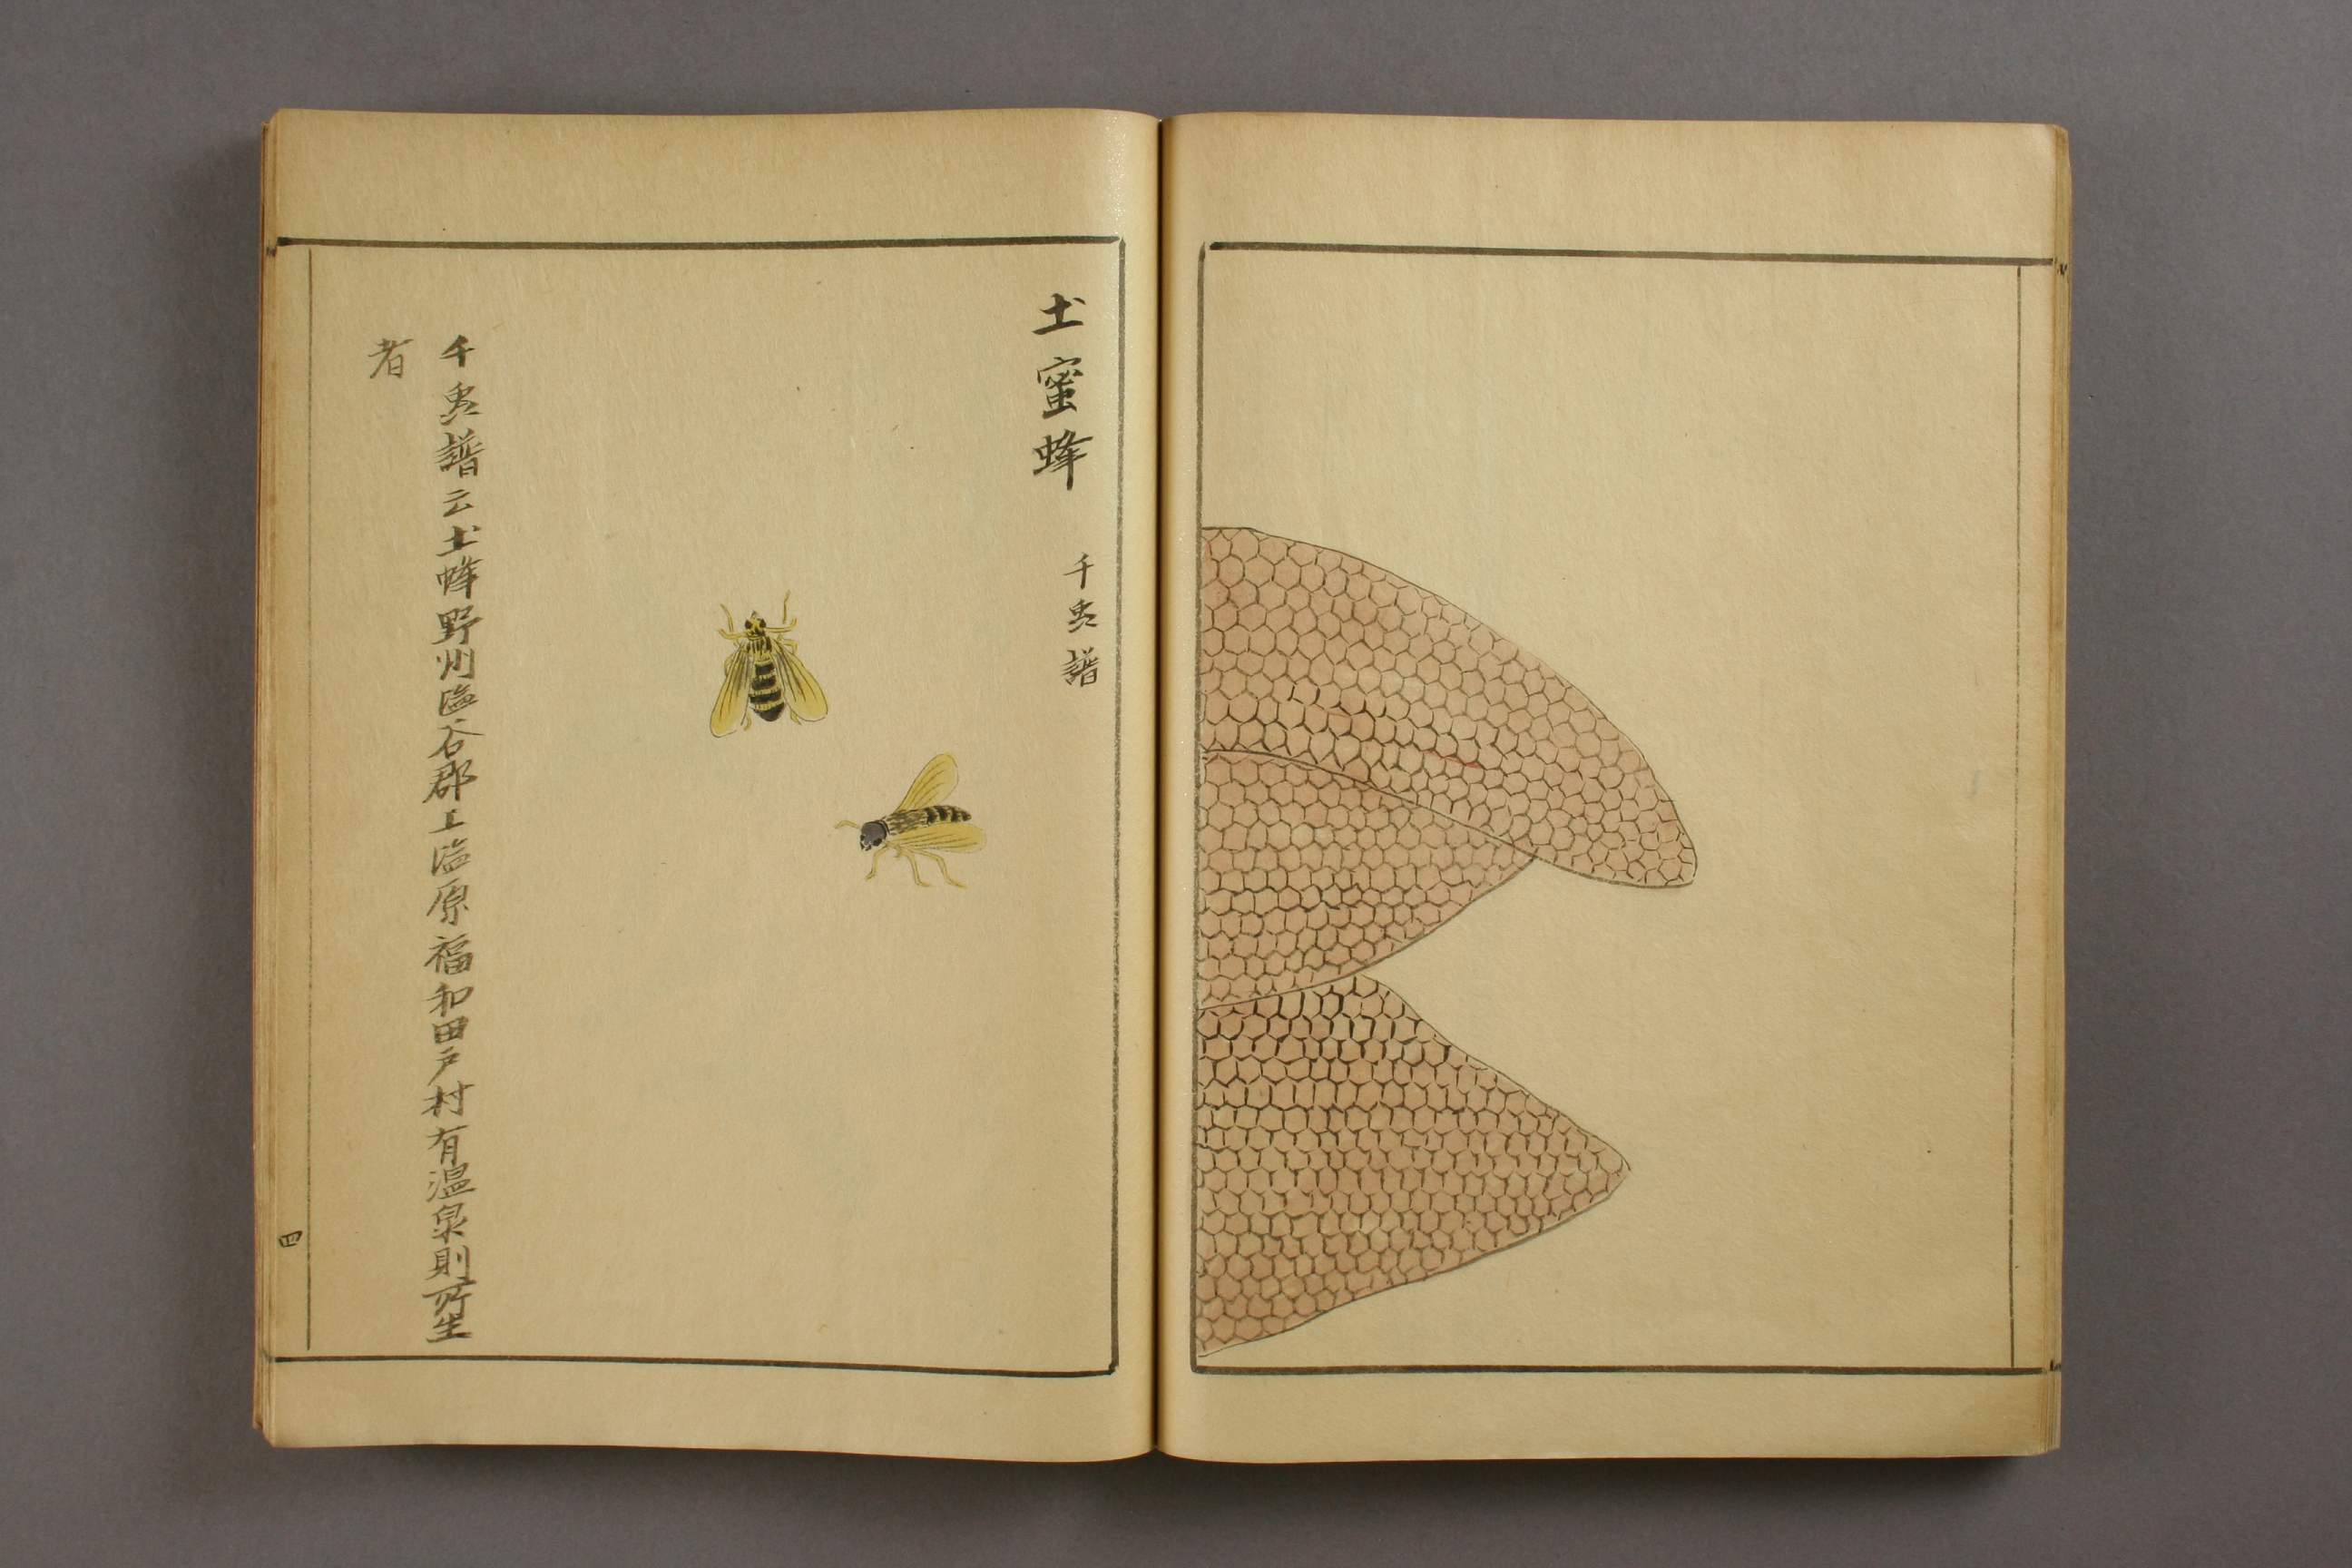 土蜜蜂
千虫譜
千虫譜云土蜂野州塩谷郡上塩原福和田戸村有温泉則所生
者
四